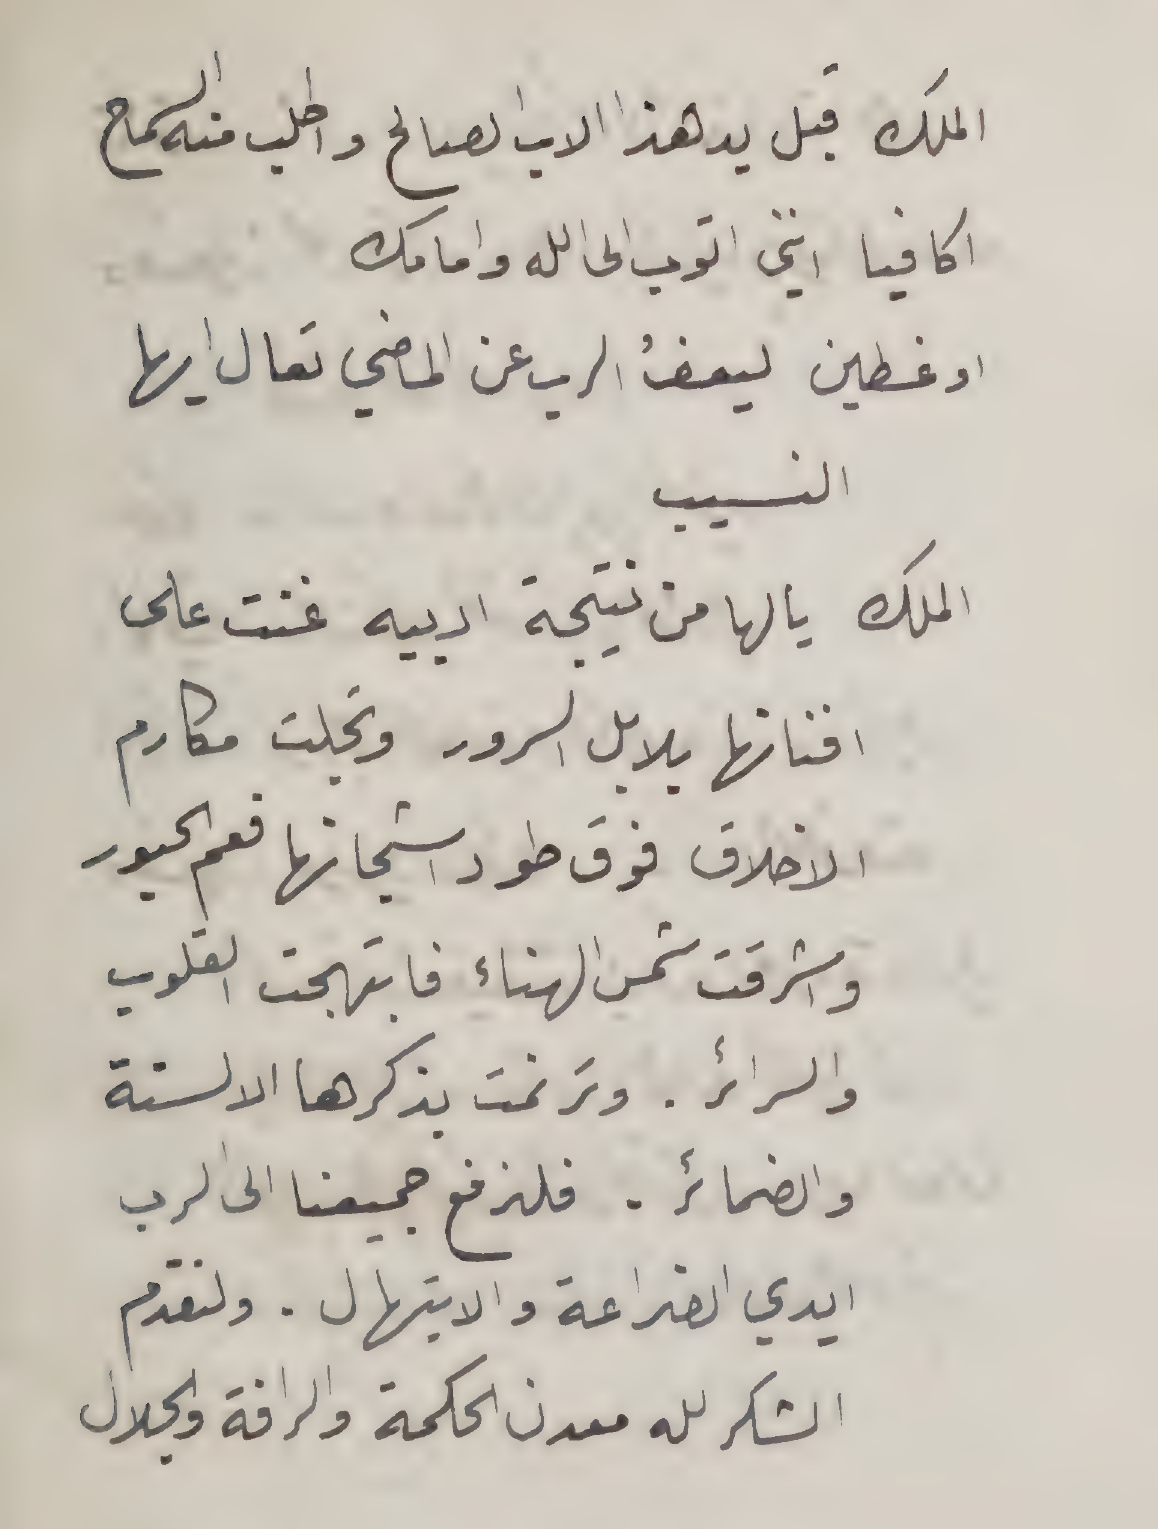 الملك قبل يد هذا الاب الصالح واطلب منه السماح
اكافيا انني اتوب الى الله وامامك
اوغسطين ليعفُ الرب عن الماضي تعال ايها
النسيب
الملك يالها من نتيجة ادبيه غنت على
افنانها بلابل السرور وتجلت مكارم
الاخلاق فوق طود اشجانها فعم الحبور
واشرقت شمس الهناء فابتهجت القلوب
والسرائر . وترنمت بذكرها الالسنة
والضمائر . فلنرفع جميعنا الى الرب
ايدي الضراعة والابتهال . ولنقدم
الشكر لله معدن الحكمة والرافة والجلال